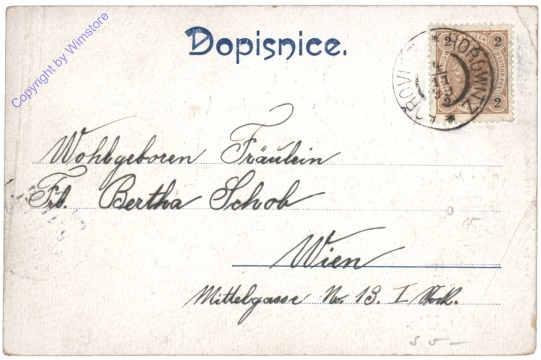 Copyright by Wimstore
Dopisnice.
2 2
2 2
HOŘOWITZ
Wohlgeboren Fräulein
Frl. Bertha Schob
Wien
Mittelgasse Nr. 13. I Stock.
15